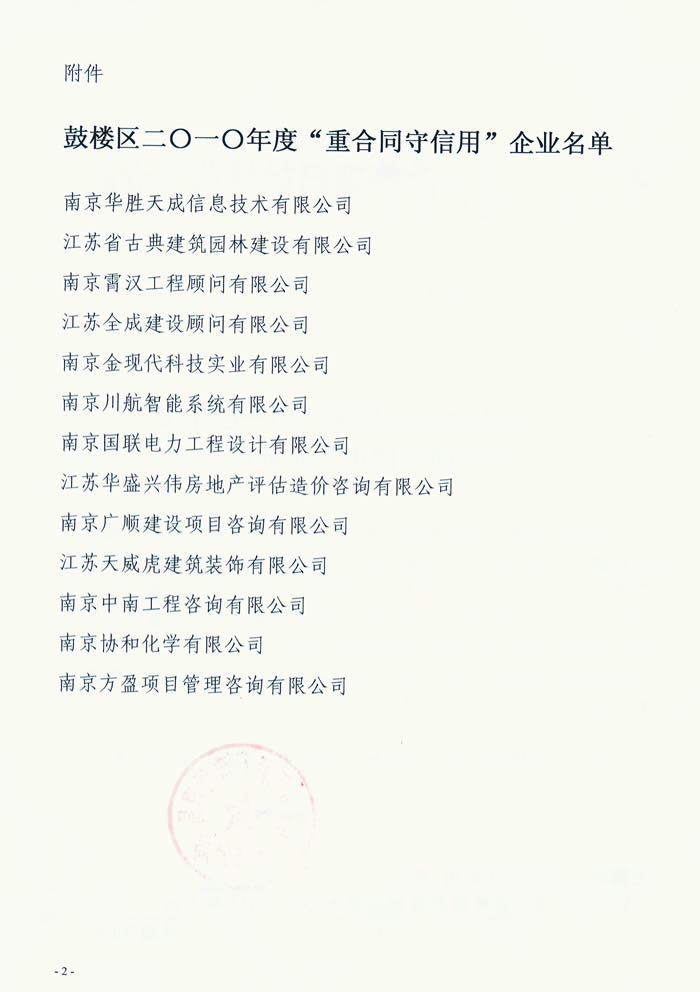 附件
鼓楼区二〇一〇年度“重合同守信用”企业名单
南京华胜天成信息技术有限公司
江苏省古典建筑园林建设有限公司
南京霄汉工程顾问有限公司
江苏全成建设顾问有限公司
南京金现代科技实业有限公司
南京川航智能系统有限公司
南京国联电力工程设计有限公司
江苏华盛兴伟房地产评估造价咨询有限公司
南京广顺建设项目咨询有限公司
江苏天威虎建筑装饰有限公司
南京中南工程咨询有限公司
南京协和化学有限公司
南京方盈项目管理咨询有限公司
- 2 -